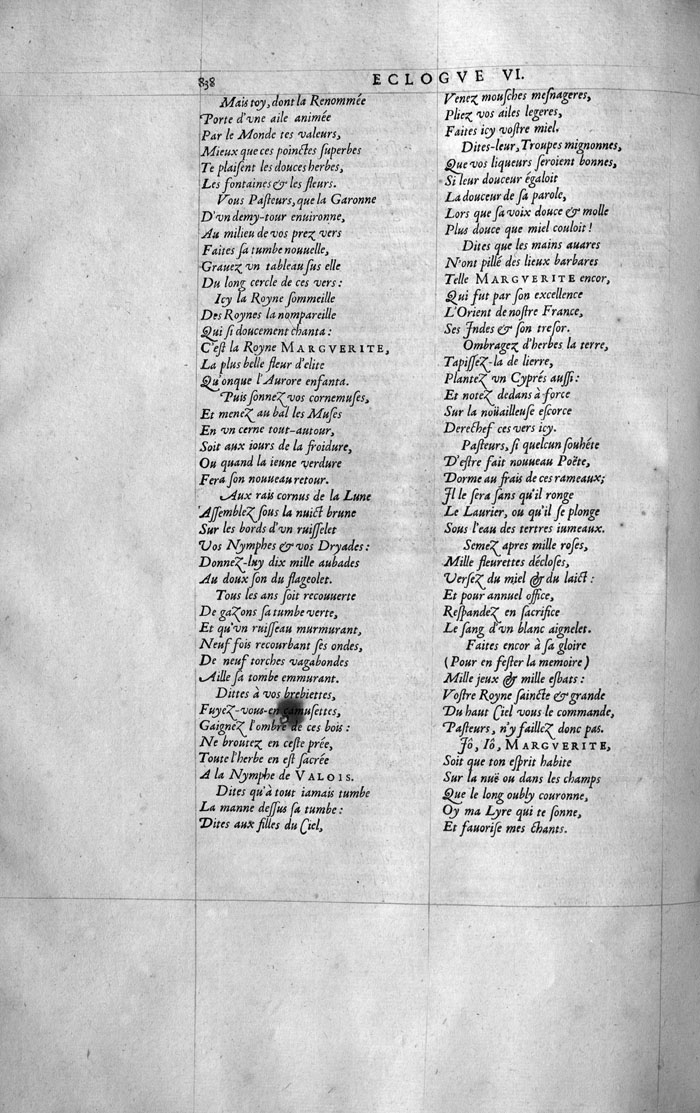 838
ECLOGVE VI.
Mais toy, dont la Renommée
Porte d'vne aile animée
Par le Monde tes valeurs,
Mieux que ces poinctes superbes
Te plaisent les douces herbes,
Les fontaines & les fleurs.
Vous Pasteurs, que la Garonne
D'vn demy-tour enuironne,
Au milieu de vos prez vers
Faites sa tumbe nouuelle,
Grauez vn tableau sus elle
Du long cercle de ces vers:
Icy la Royne sommeille
Des Roynes la nompareille
Qui si doucement chanta:
C'est la Royne MARGVERITE,
La plus belle fleur d'elite
Qu'onque l'Aurore enfanta.
Puis sonnez vos cornemuses,
Et menez au bal les Muses
En vn cerne tout-autour,
Soit aux iours de la froidure,
Ou quand la ieune verdure
Fera son nouueau retour.
Aux rais cornus de la Lune
Assemblez sous la nuict brune
Sur les bords d'vn ruisselet
Vos Nymphes & vos Dryades:
Donnez-luy dix mille aubades
Au doux son du flageolet.
Tous les ans soit recouuerte
De gazons sa tumbe verte,
Et qu'vn ruisseau murmurant,
Neuf fois recourbant ses ondes,
De neuf torches vagabondes
Aille sa tombe emmurant.
Dittes à vos brebiettes,
Fuyez-vous-en camusettes,
Gaignez l'ombre de ces bois:
Ne broutez en ceste prée,
Toute l'herbe en est sacrée
A la Nymphe de VALOIS.
Dites qu'à tout iamais tumbe
La manne dessus sa tumbe:
Dites aux filles du Ciel,
Venez mousches mesnageres,
Pliez vos ailes legeres,
Faites icy vostre miel.
Dites-leur, Troupes mignonnes,
Que vos liqueurs seroient bonnes,
Si leur douceur égaloit
La douceur de sa parole,
Lors que sa voix douce & molle
Plus douce que miel couloit!
Dites que les mains auares
N'ont pillé des lieux barbares
Telle MARGVERITE encor,
Qui fut par son excellence
L'Orient de nostre France,
Ses Indes & son tresor.
Ombragez d'herbes la terre,
Tapissez-la de lierre,
Plantez vn Cyprés aussi:
Et notez dedans à force
Sur la noüailleuse escorce
Derechef ces vers icy.
Pasteurs, si quelcun souhéte
D'estre fait nouueau Poëte,
Dorme au frais de ces rameaux;
Il le sera sans qu'il ronge
Le Laurier, ou qu'il se plonge
Sous l'eau des tertres iumeaux.
Semez apres mille roses,
Mille fleurettes décloses,
Versez du miel & du laict:
Et pour annuel office,
Respandez en sacrifice
Le sang d'vn blanc aignelet.
Faites encor à sa gloire
(Pour en fester la memoire)
Mille jeux & mille esbats:
Vostre Royne saincte & grande
Du haut Ciel vous le commande,
Pasteurs, n'y faillez donc pas.
Iô, Iô, MARGVERITE,
Soit que ton esprit habite
Sur la nuë ou dans les champs
Que le long oubly couronne,
Oy ma Lyre qui te sonne,
Et fauorise mes chants.